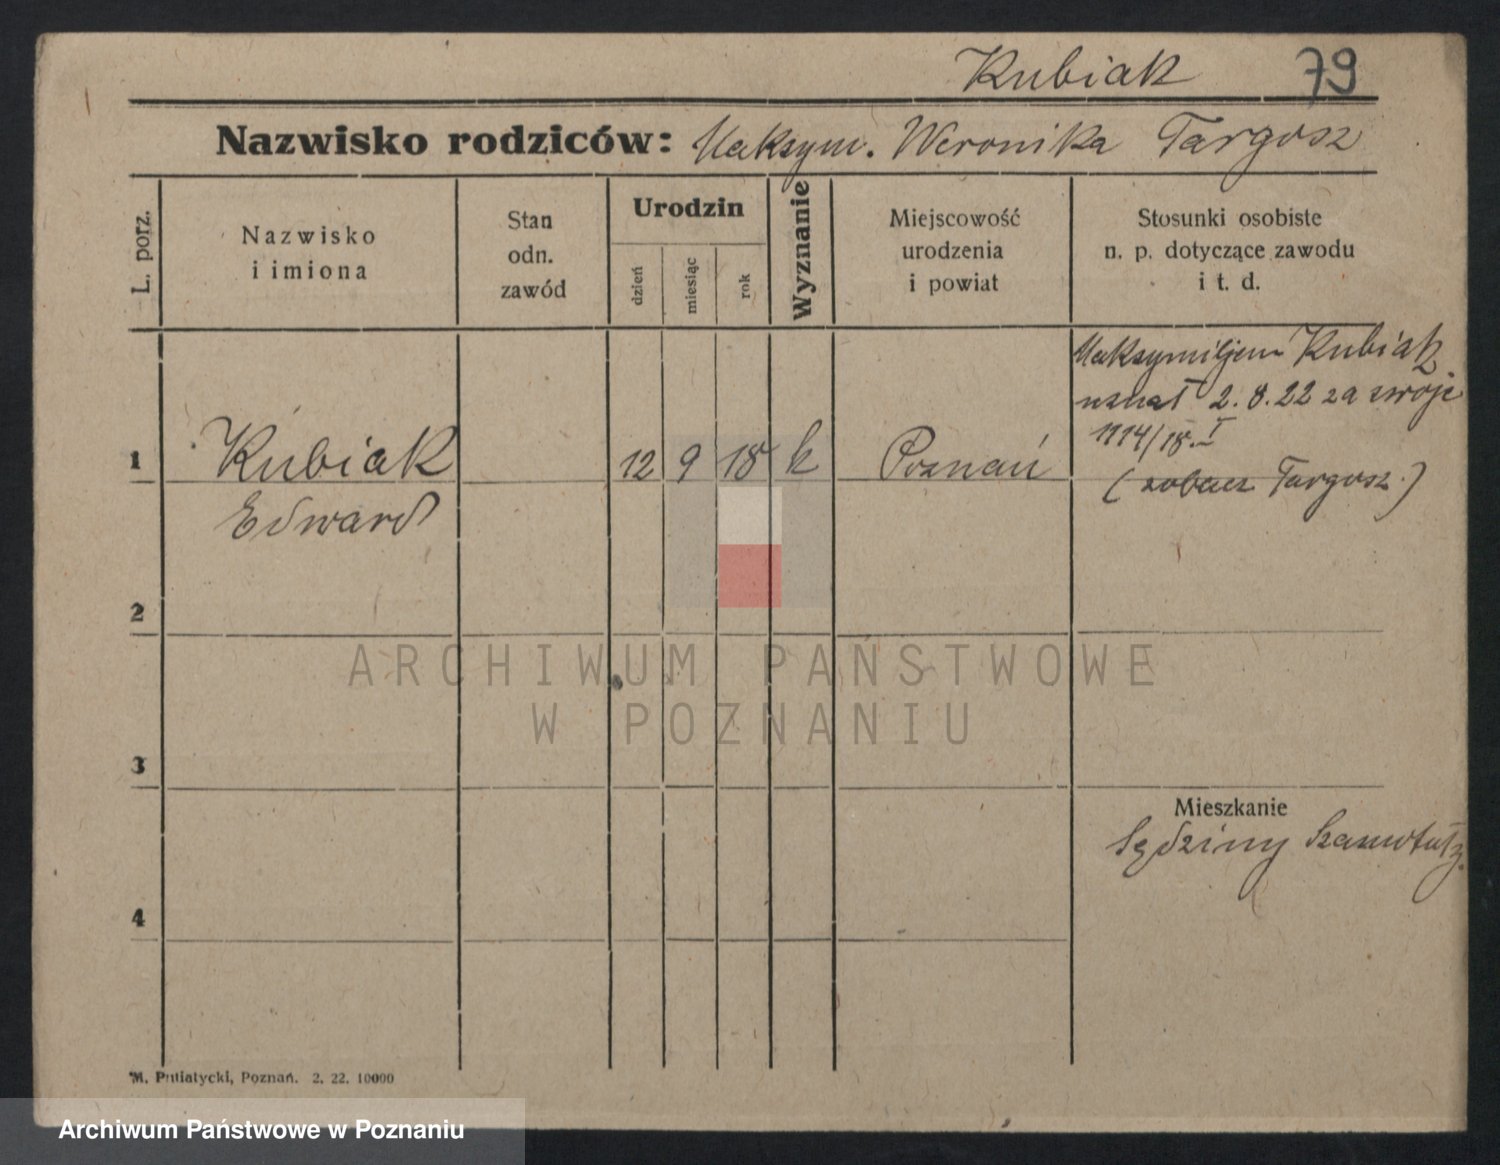 Kubiak 79
Nazwisko rodziców: Maksym. Weronika Targosz
L. porz.
Nazwisko
i imiona
Stan
odn.
zawód
Urodzin
dzień
miesiąc
rok
Wyznanie
Miejscowość
urodzenia
i powiat
Stosunki osobiste
n. p. dotyczące zawodu
i t. d.
Maksymiljem Kubiak
uznał 2.8.22 za swoje
1114/18.I
(zobacz Targosz.)
1 Kubiak 12 9 18 k Poznań
Edward
2
3
4
Mieszkanie
Sędziny
M. Putiatycki, Poznań. 2. 22. 10000
ARCHIWUM PAŃSTWOWE
W POZNANIU
Archiwum Państwowe w Poznaniu